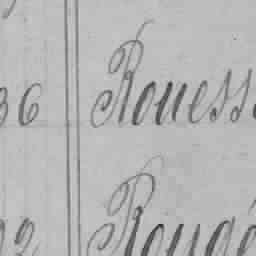 36 Rouess
92 Rougé